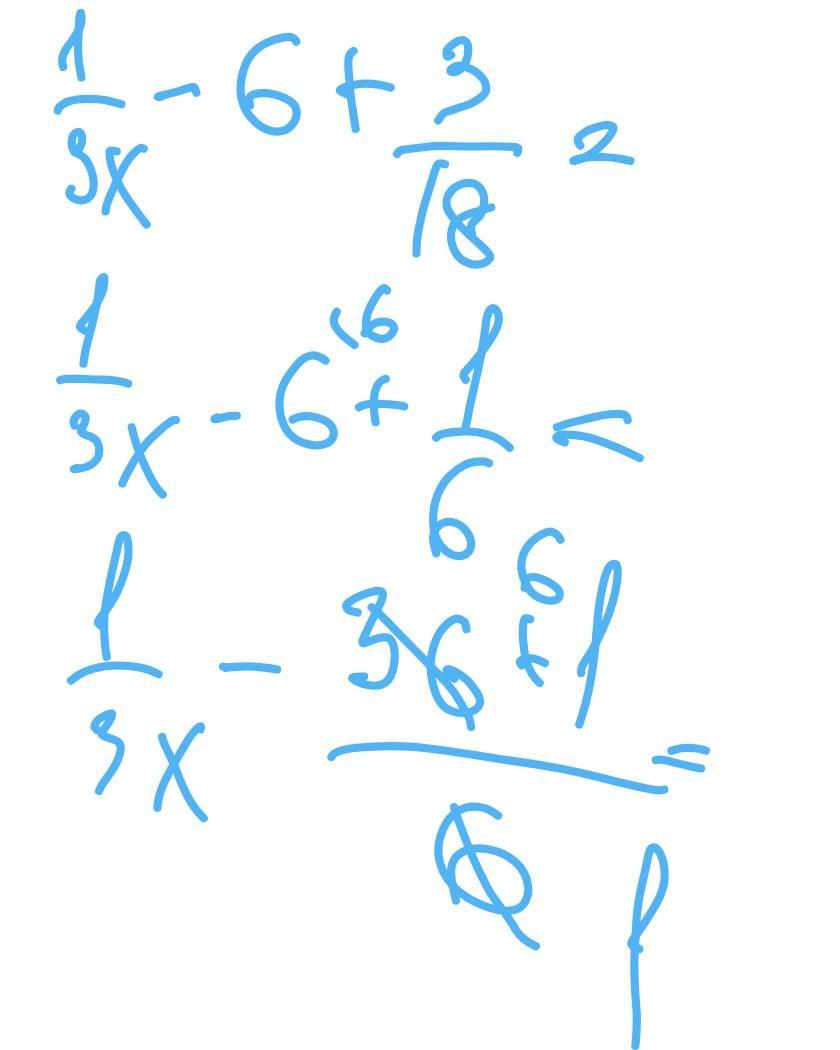 1/3x - 6 + 3/18 =
1/3x - 6 \6 + 1/6 =
1/3x - 36 + 1/6 = 6/1